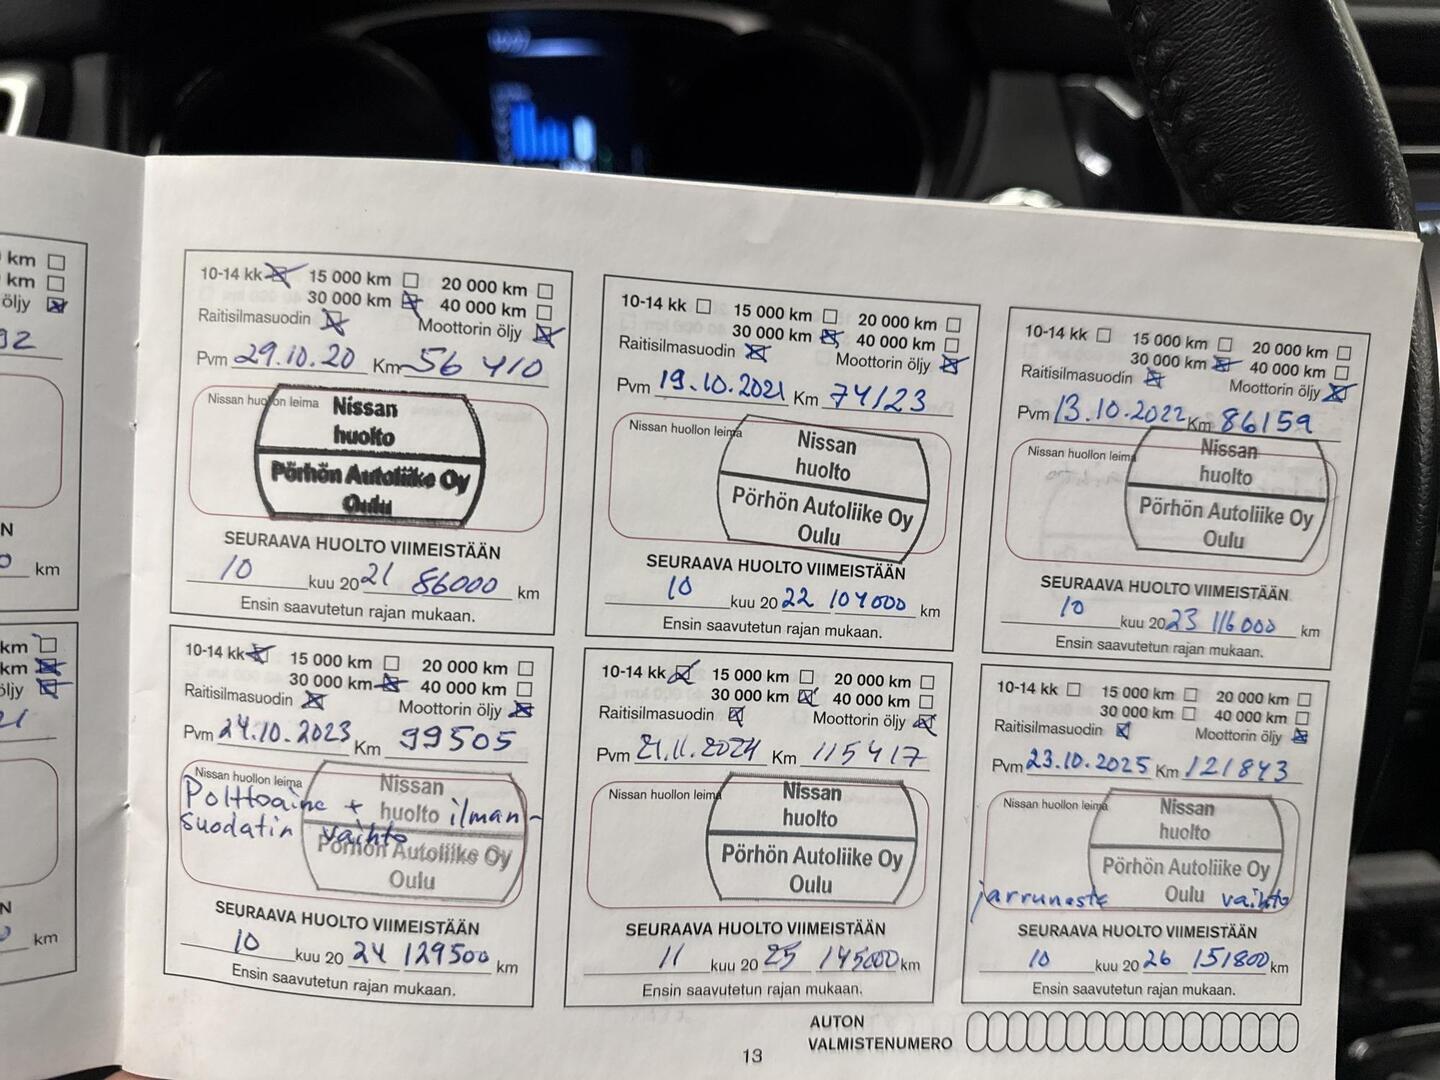 km
km
öljy
92
N
0 km
km
km
öljy
21
N
km
10-14 kk 15 000 km 20 000 km
30 000 km 40 000 km
Raitisilmasuodin Moottorin öljy
Pvm 29.10.20 Km 56 410
Nissan huollon leima
Nissan
huolto
Pörhön Autoliike Oy
Oulu
SEURAAVA HUOLTO VIIMEISTÄÄN
10 kuu 2021 86000 km
Ensin saavutetun rajan mukaan.
10-14 kk 15 000 km 20 000 km
30 000 km 40 000 km
Raitisilmasuodin Moottorin öljy
Pvm 19.10.2021 Km 74123
Nissan huollon leima
Nissan
huolto
Pörhön Autoliike Oy
Oulu
SEURAAVA HUOLTO VIIMEISTÄÄN
10 kuu 2022 104000 km
Ensin saavutetun rajan mukaan.
10-14 kk 15 000 km 20 000 km
30 000 km 40 000 km
Raitisilmasuodin Moottorin öljy
Pvm 13.10.2022 Km 86159
Nissan huollon leima
Nissan
huolto
Pörhön Autoliike Oy
Oulu
SEURAAVA HUOLTO VIIMEISTÄÄN
10 kuu 2023 116000 km
Ensin saavutetun rajan mukaan.
10-14 kk 15 000 km 20 000 km
30 000 km 40 000 km
Raitisilmasuodin Moottorin öljy
Pvm 24.10.2023 Km 99505
Nissan huollon leima
Nissan
Polttoaine + huolto ilman-
suodatin vaihto
Pörhön Autoliike Oy
Oulu
SEURAAVA HUOLTO VIIMEISTÄÄN
10 kuu 2024 129500 km
Ensin saavutetun rajan mukaan.
10-14 kk 15 000 km 20 000 km
30 000 km 40 000 km
Raitisilmasuodin Moottorin öljy
Pvm 21.11.2024 Km 115417
Nissan huollon leima
Nissan
huolto
Pörhön Autoliike Oy
Oulu
SEURAAVA HUOLTO VIIMEISTÄÄN
11 kuu 2025 145000 km
Ensin saavutetun rajan mukaan.
10-14 kk 15 000 km 20 000 km
30 000 km 40 000 km
Raitisilmasuodin Moottorin öljy
Pvm 23.10.2025 Km 121843
Nissan huollon leima
Nissan
huolto
Pörhön Autoliike Oy
jarruneste Oulu vaihto
SEURAAVA HUOLTO VIIMEISTÄÄN
10 kuu 2026 151800 km
Ensin saavutetun rajan mukaan.
AUTON
VALMISTENUMERO
13